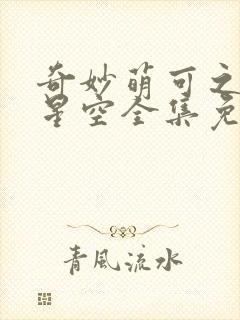 奇妙萌可之
星空全集免
青風流水